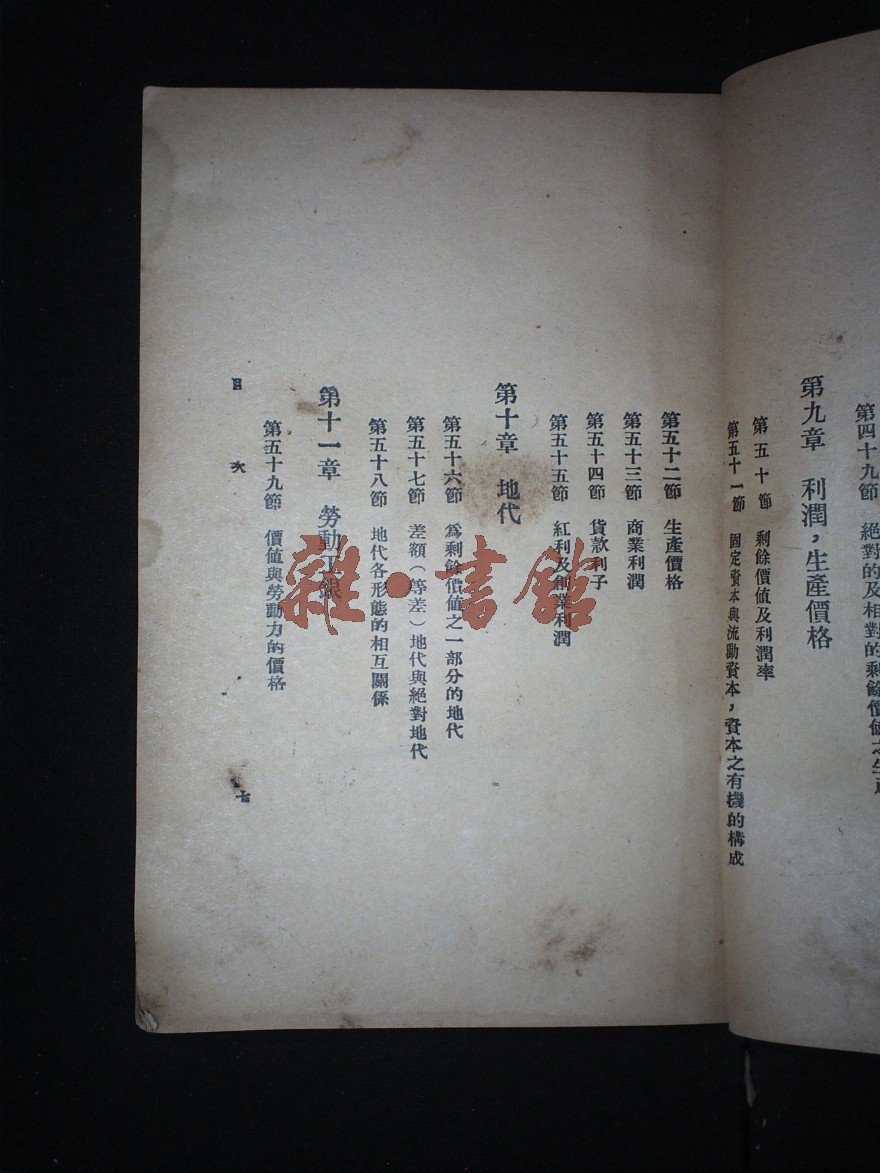 第四十九節　絕對的及相對的剩餘價値之生產
第九章　利潤，生產價格
第五十節　剩餘價値及利潤率
第五十一節　固定資本與流動資本，資本之有機的構成
第五十二節　生產價格
第五十三節　商業利潤
第五十四節　貸款利子
第五十五節　紅利及創業利潤
第十章　地代
第五十六節　爲剩餘價値之一部分的地代
第五十七節　差額（等差）地代與絕對地代
第五十八節　地代各形態的相互關係
第十一章　勞動工銀
第五十九節　價値與勞動力的價格
目次
十
雜·書館